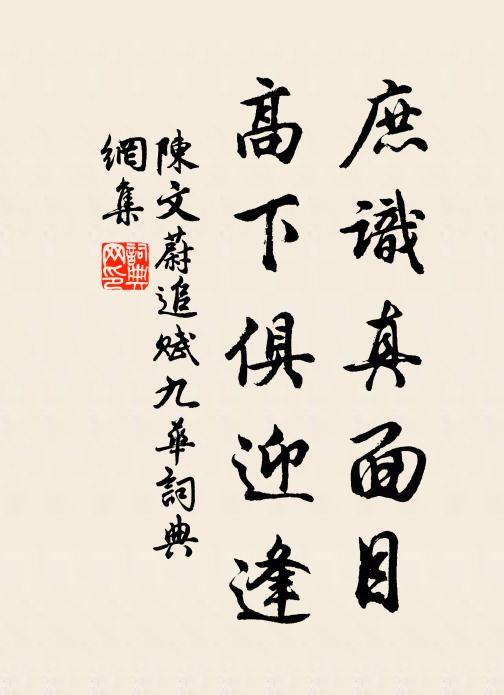 庶識真面目
高下俱迎逢
陳文蔚追賦九華詞典
網集
詞典网印